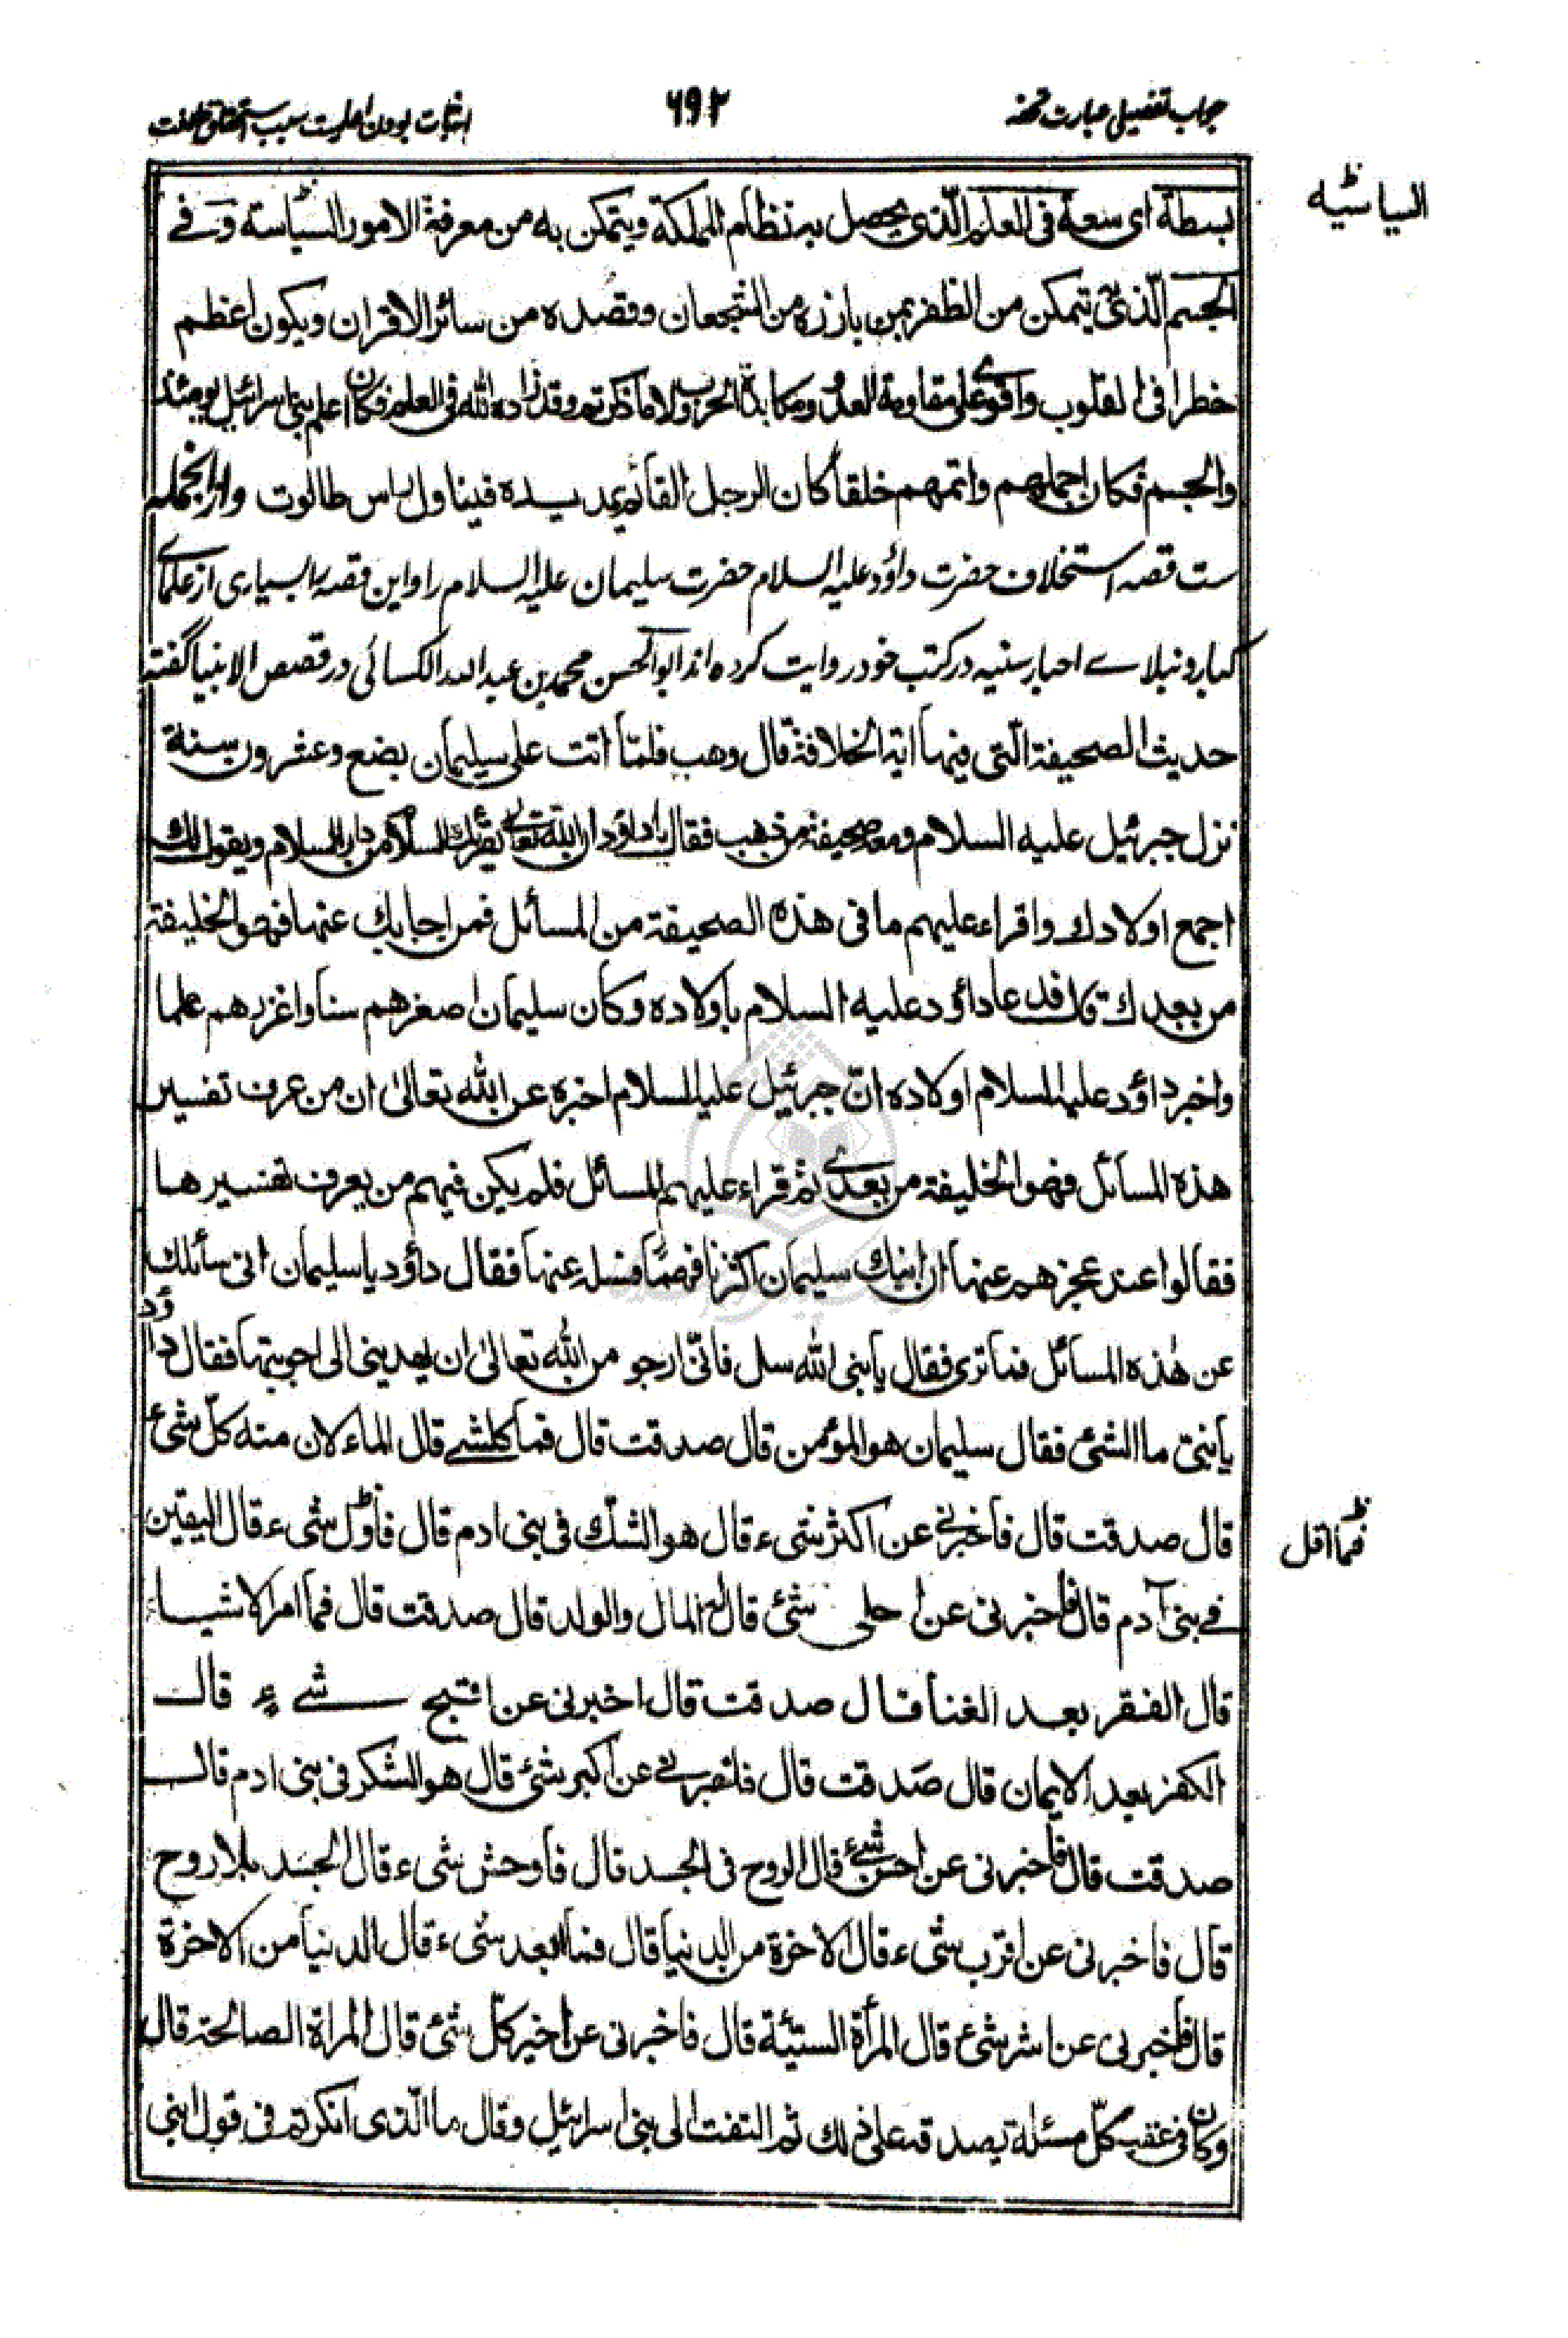 جواب تفصیلی عبارت تحفه
۶۹۲
اثبات بودن اعلمیت سبب استحقاق خلافت
السیاسیه
بسطة ای سعة فی العلم الّذی یحصل به نظام المملکة ویتمکن به من معرفة الامور السّیاسته و فے
الجسم الّذی یتمکن من الظفر بمن بارزه من الشجعان وقصده من سائر الاقران ویکون اعظم
خطرا فی القلوب واقوی علی مقاومة العدوّ ومکابدة الحروب لا ما ذکرتم وقد زاده الله فی العلم فکان اعلم بنی اسرائیل یومئذ
والجسم فکان اجملهم واتمهم خلقا کان الرجل القائم یمد یده فیناول راس طالوت وازانجمله
ست قصه استخلاف حضرت داؤد علیه السلام حضرت سلیمان علیه السلام را واین قصه را بسیاری از علمای
کبار ونبلاے احبار سنیه درکتب خود روایت کرده اند ابو الحسن محمد بن عبد الله الکسائی در قصص الانبیا گفته
حدیث الصحیفة الّتی فیها آیة الخلافة قال وهب فلمّا اتت علی سلیمان بضع وعشرون سنة
نزل جبرئیل علیه السلام ومعه صحیفة من ذهب فقال یا داؤد ان الله تعالی یقرئک السلام من دار السلام ویقول لک
اجمع اولادک واقراء علیهم ما فی هذه الصحیفة من المسائل فمن اجابک عنها فهو الخلیفة
من بعدک قال فدعا داؤد علیه السلام باولاده وکان سلیمان اصغرهم سنا واغزرهم علما
واخبر داؤد علیه السلام اولاده انّ جبرئیل علیه السلام اخبره عن الله تعالیٰ ان من عرف تفسیر
هذه المسائل فهو الخلیفة من بعدی ثم قراء علیهم المسائل فلم یکن فیهم من یعرف تفسیرها
فقالوا عند عجزهم عنها ان ابنک سلیمان اکثرنا فهمًا فسله عنها فقال داؤد یا سلیمان انی سائلک
عن هٰذه المسائل فما تری فقال یا نبی الله سل فانّی ارجو من الله تعالیٰ ان یهدینی الی اجوبتها فقال داؤد
یا بنیّ ما الشئ فقال سلیمان هو المؤمن قال صدقت قال فما کلشے قال الماء لان منه کلّ شئ
قال صدقت قال فاخبرنی عن اکثر شیء قال هو الشکّ فی بنی ادم قال فاوّل شیء قال الیقین
فما اقل
فے بنی آدم قال فاخبرنی عن احلی شئ قال المال والولد قال صدقت قال فما امر الاشیاء
قال الفقر بعد الغنا قال صدقت قال اخبرنی عن اقبح شےء قال
الکفر بعد الایمان قال صدقت قال فاخبرنے عن اکبر شئ قال هو الشکر فی بنی ادم قال
صدقت قال فاخبرنی عن احسن شےء قال الروح فی الجسد قال فاوحش شیء قال الجسد بلا روح
قال فاخبرنی عن اقرب شیء قال الاخرة من الدنیا قال فما ابعد شیء قال الدنیا من الاخرة
قال فاخبرنی عن اشر شیء قال المرأة السیّئة قال فاخبرنی عن اخیر کلّ شئ قال المراة الصالحة قال
وکان فی عقب کلّ مسئلة یصدقه علی ذلک ثم التفت الی بنی اسرائیل وقال ما الّذی انکرتم فی قول ابنی